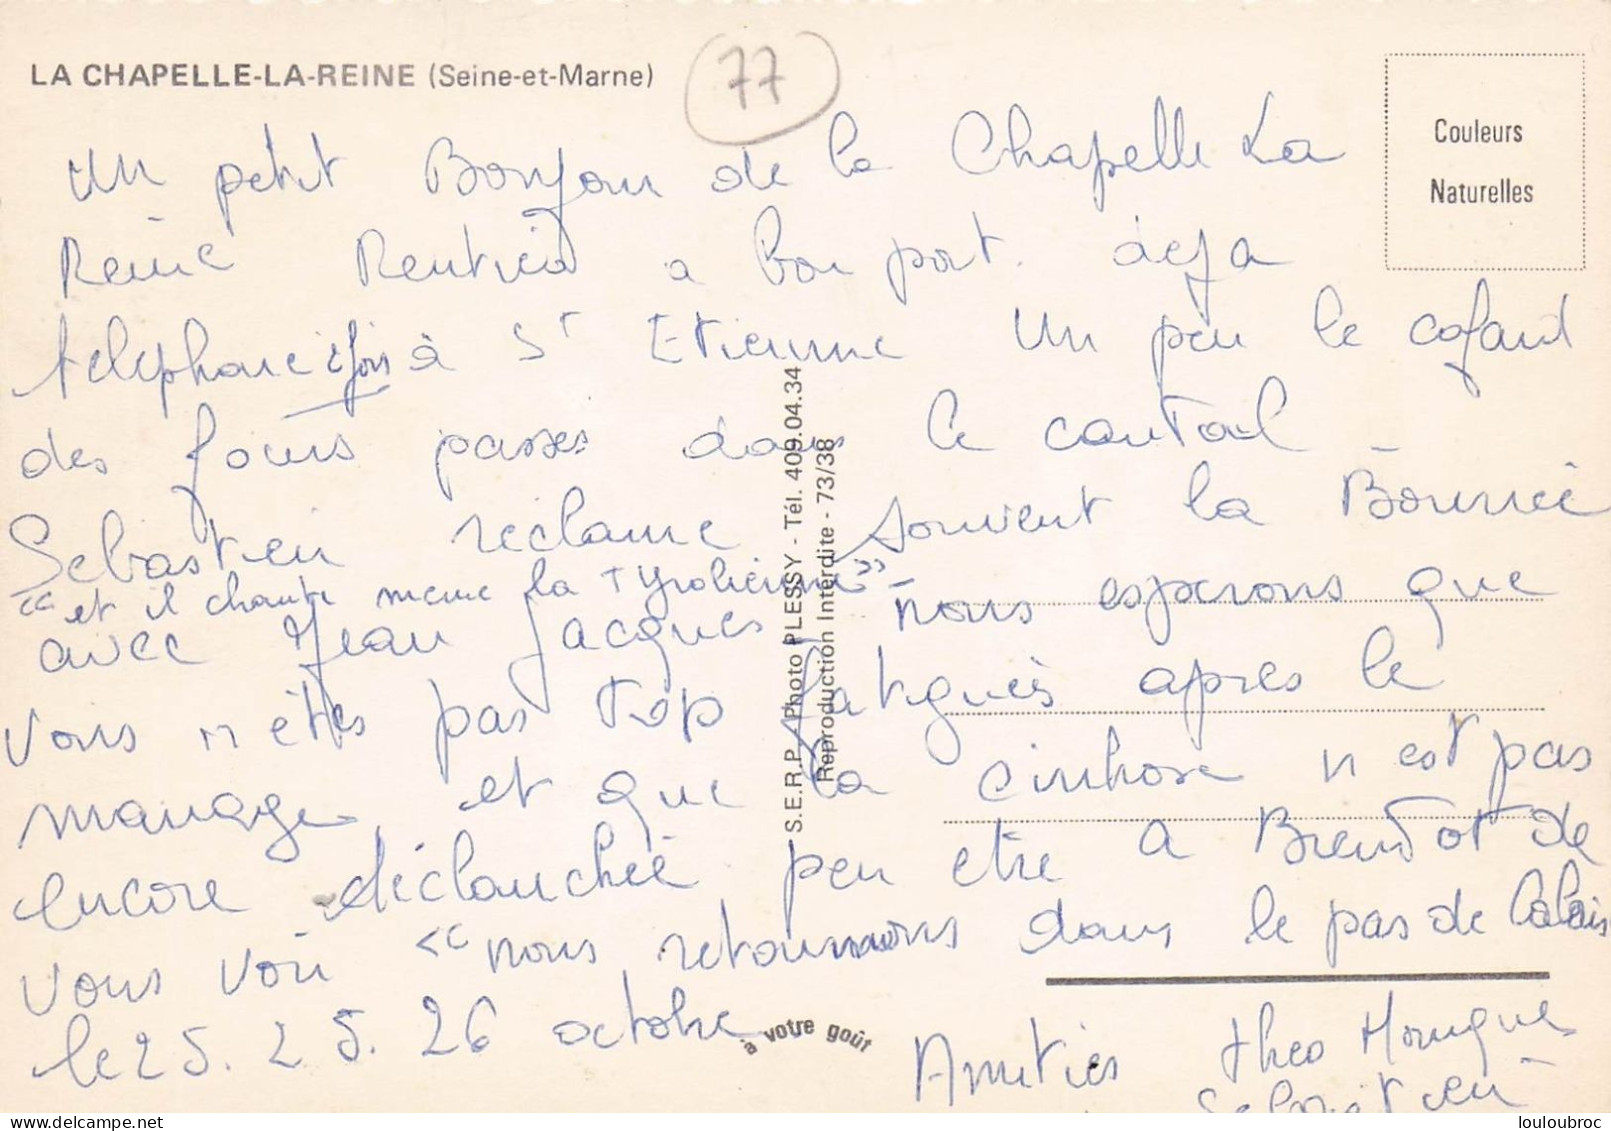 LA CHAPELLE-LA-REINE (Seine-et-Marne)
77
Couleurs
Naturelles
Un petit Bonjour de la Chapelle La
Reine Rentrés a bon port. deja
telephone 2 fois à St Etienne Un peu le cafard
des jours passes dans le cantal -
Sebastien reclame souvent la Bourrée
"et il chante meme la Tyrolienne"
avec Jean Jacques - nous esperons que
vous n'êtes pas trop fatigués apres le
mariage et que la cirrhose n'est pas
encore déclanchée peu etre A Bientot de
vous voir "nous retournerons dans le pas de Calais
le 25. 25. 26 octobre
Amitiés theo Monique
Sebastien
S.E.R.P. Photo PLESSY - Tél. 409.04.34
Reproduction Interdite - 73/38
à votre goût
delcampe.net
louloubroc